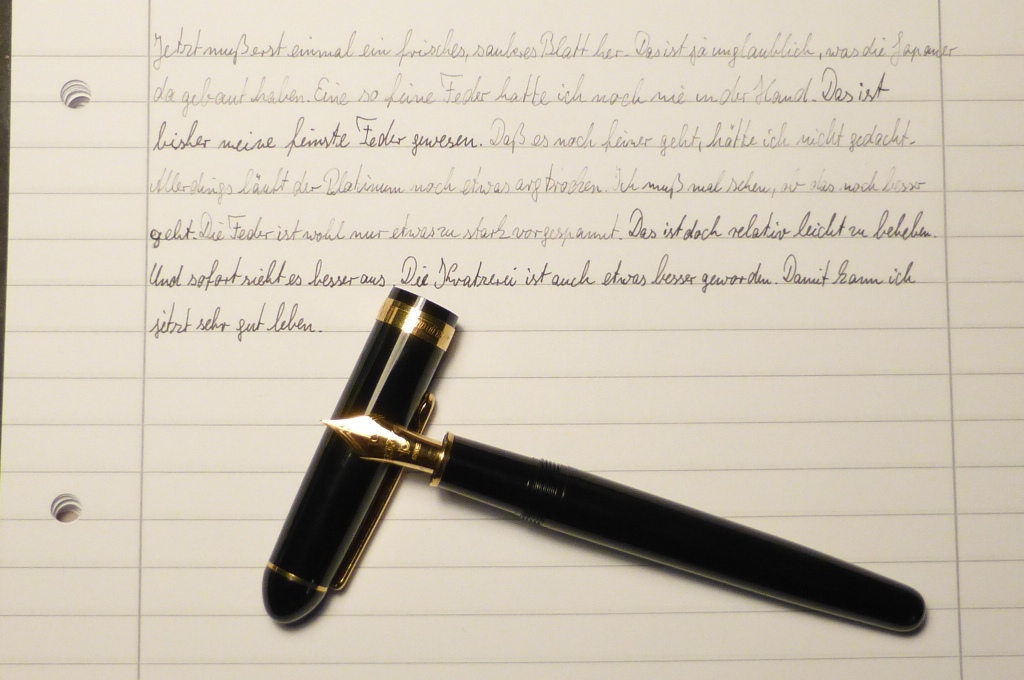 Jetzt muß erst einmal ein frisches, sauberes Blatt her. Das ist ja unglaublich, was die Japaner
da gebaut haben. Eine so feine Feder hatte ich noch nie in der Hand. Das ist
bisher meine feinste Feder gewesen. Daß es noch feiner geht, hätte ich nicht gedacht.
Allerdings läuft der Platinum noch etwas arg trocken. Ich muß mal sehen, ob das noch besser
geht. Die Feder ist wohl nur etwas zu stark vorgespannt. Das ist doch relativ leicht zu beheben.
Und sofort sieht es besser aus. Die Kratzerei ist auch etwas besser geworden. Damit kann ich
jetzt sehr gut leben.